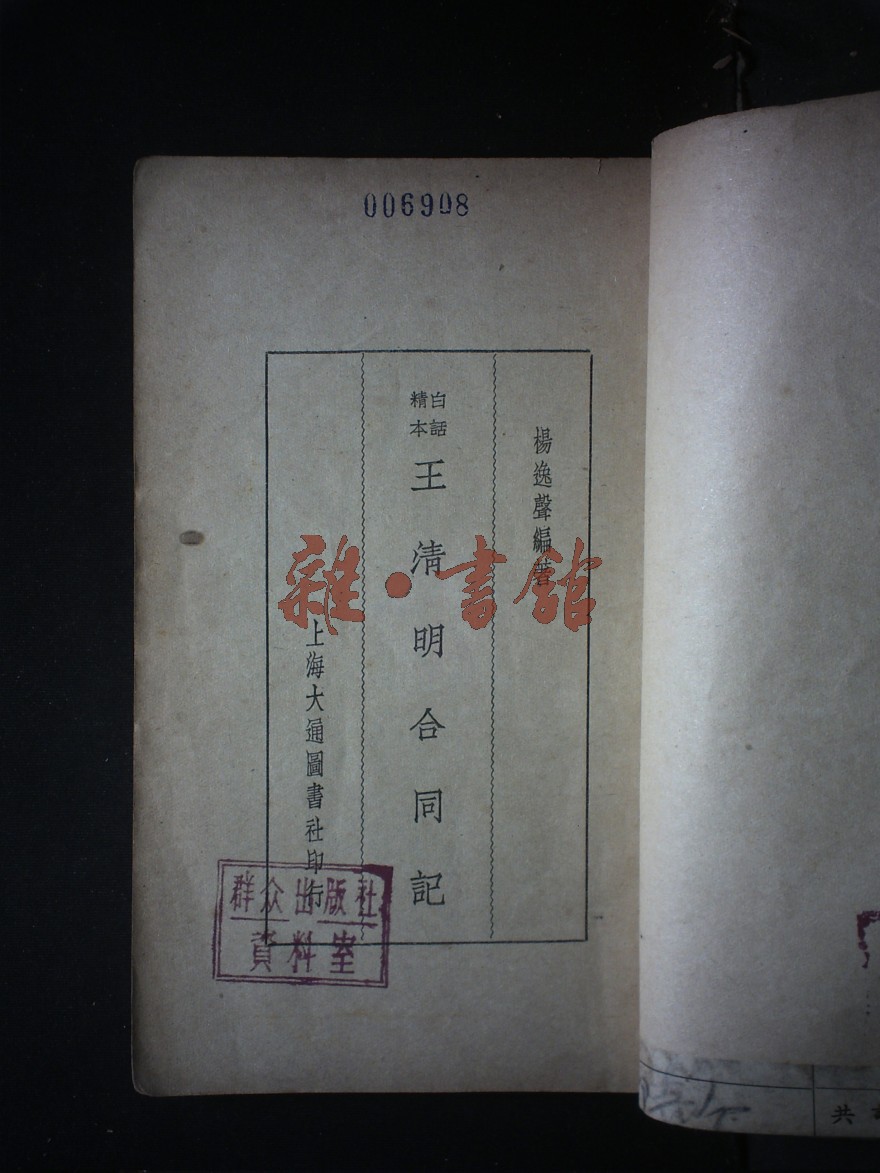 006908
楊逸聲編著
白話
精本
王清明合同記
上海大通圖書社印行
雜·書館
群众出版社
資料室
共